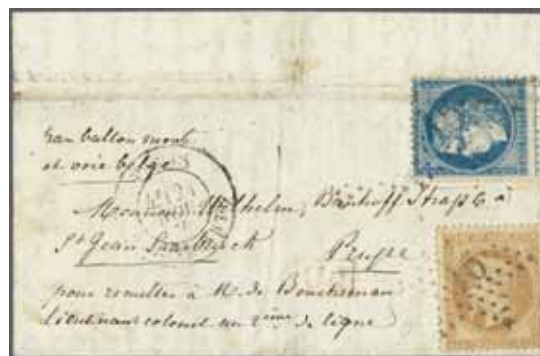 par ballon monté
et voie belge
Monsieur Wilhelm, Bahnhoff Straße 6 à
St Jean Saarbruck Prusse
pour remettre à M. de Boucheman
Lieutenant colonel au 2ème de ligne